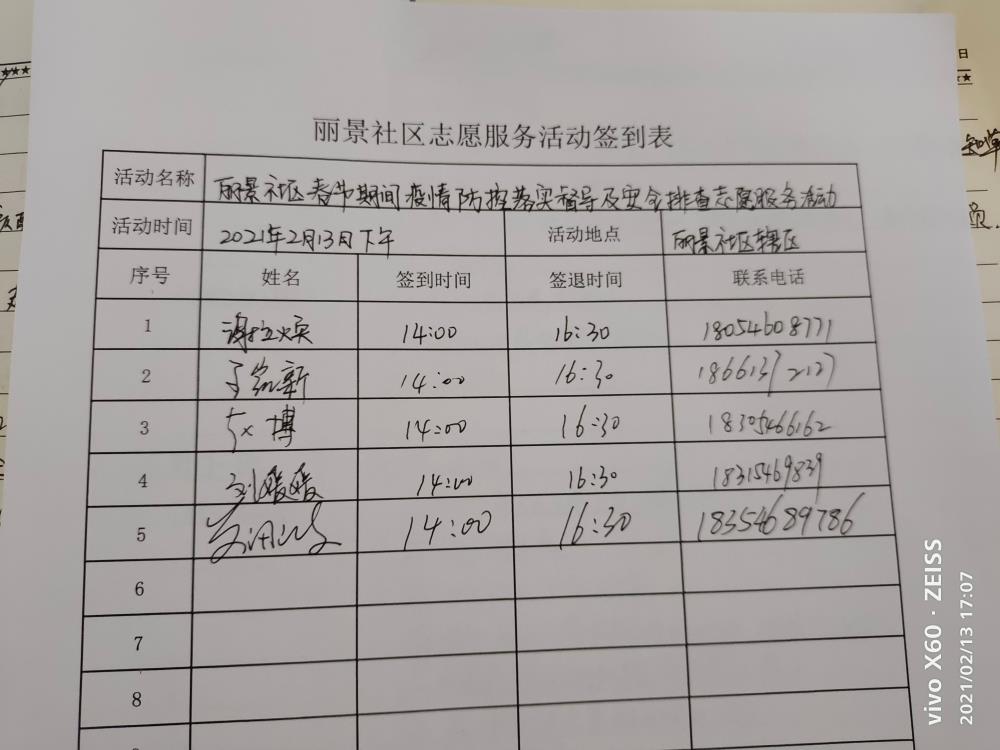 丽景社区志愿服务活动签到表
活动名称 丽景社区春节期间疫情防控落实督导及安全排查志愿服务活动
活动时间 2021年2月13日下午 活动地点 丽景社区辖区
序号 姓名 签到时间 签退时间 联系电话
1 14:00 16:30 18054608771
2 14:00 16:30 18661372127
3 博 14:00 16:30 18305466162
4 刘媛媛 14:00 16:30 18315469839
5 14:00 16:30 18354689786
6
7
8
日
vivo X60 · ZEISS
2021/02/13 17:07